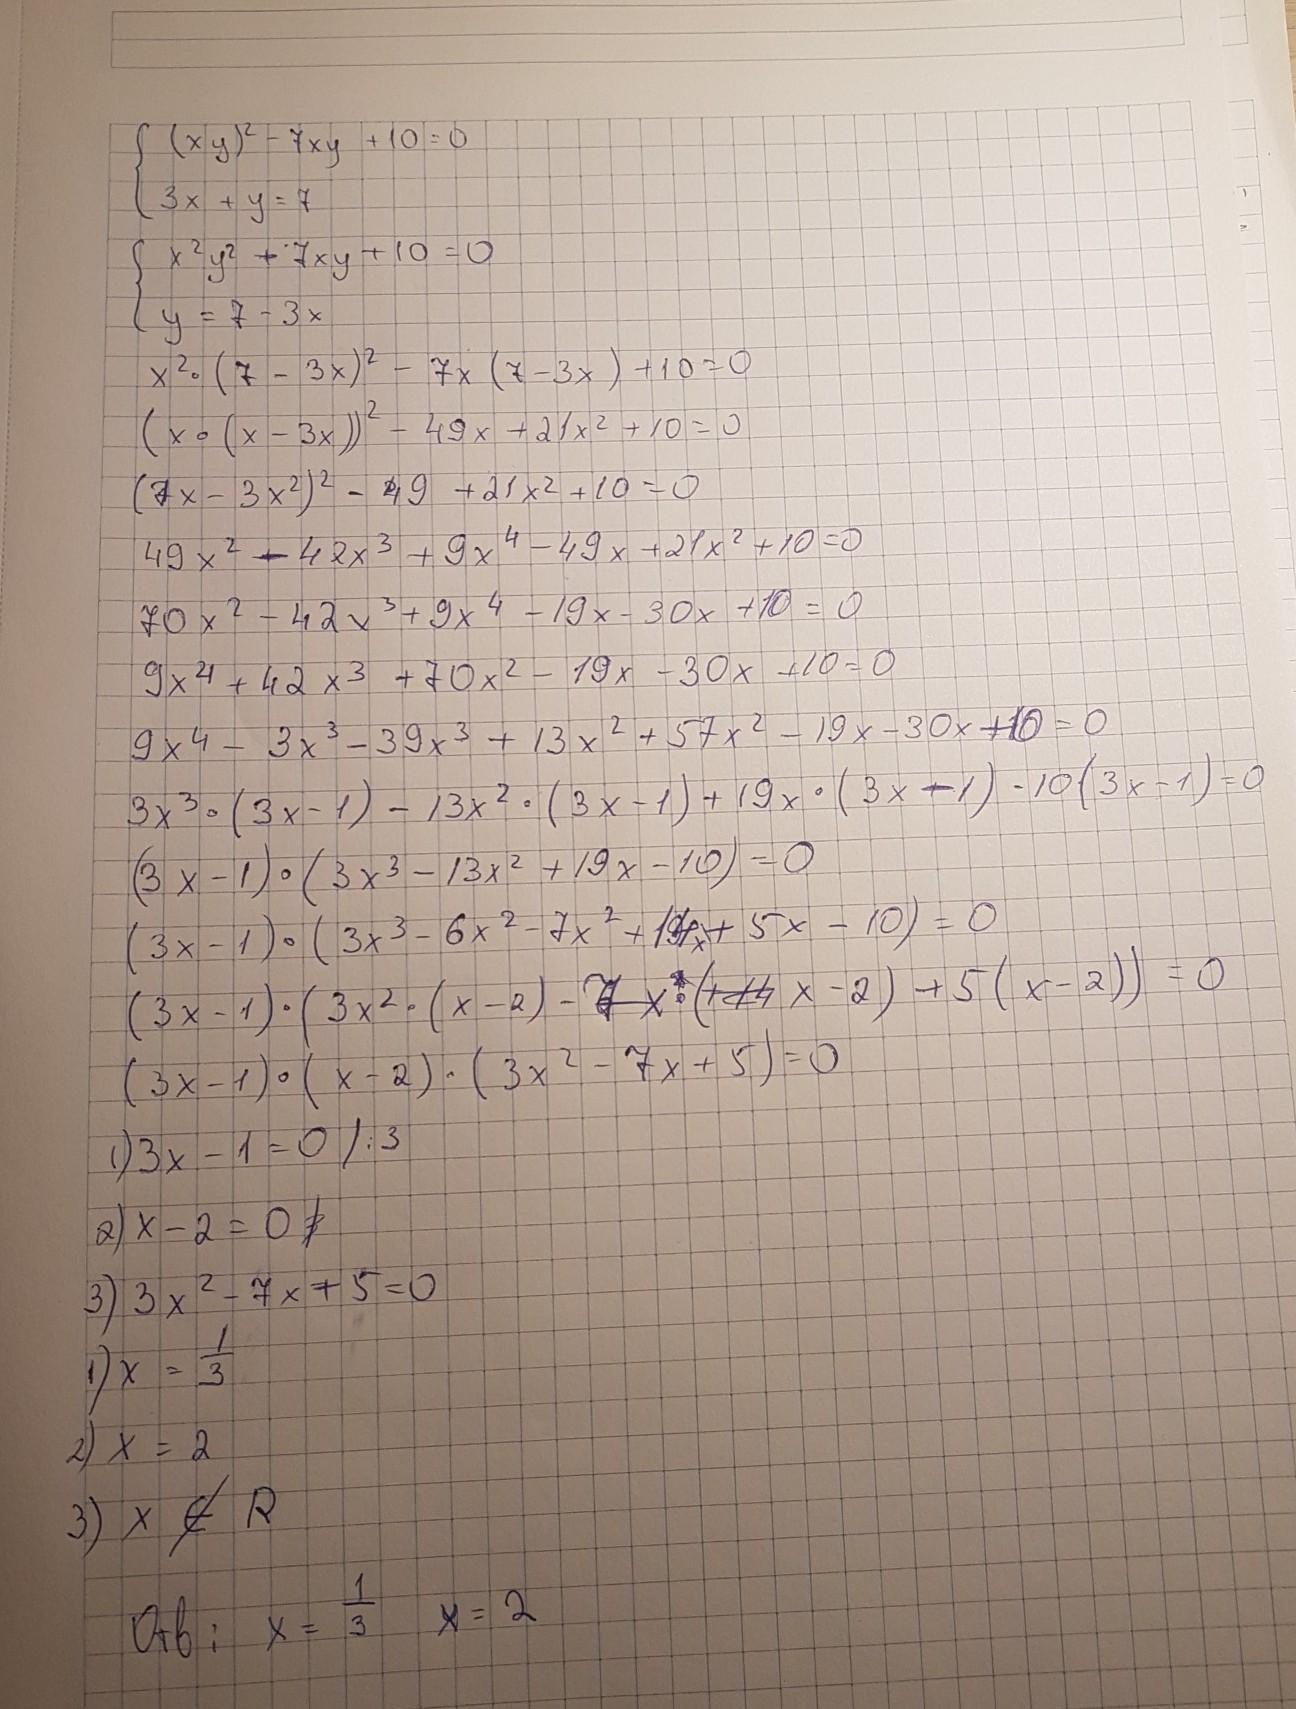 (xy)² - 7xy + 10 = 0
3x + y = 7
x²y² + 7xy + 10 = 0
y = 7 - 3x
x² • (7 - 3x)² - 7x (7 - 3x) + 10 = 0
(x • (x - 3x))² - 49x + 21x² + 10 = 0
(7x - 3x²)² - 49 + 21x² + 10 = 0
49x² - 42x³ + 9x⁴ - 49x + 21x² + 10 = 0
70x² - 42x³ + 9x⁴ - 19x - 30x + 10 = 0
9x⁴ + 42x³ + 70x² - 19x - 30x + 10 = 0
9x⁴ - 3x³ - 39x³ + 13x² + 57x² - 19x - 30x + 10 = 0
3x³ • (3x - 1) - 13x² • (3x - 1) + 19x • (3x - 1) - 10(3x - 1) = 0
(3x - 1) • (3x³ - 13x² + 19x - 10) = 0
(3x - 1) • (3x³ - 6x² - 7x² + 14x + 5x - 10) = 0
(3x - 1) • (3x² • (x - 2) - 7x • (x - 2) + 5(x - 2)) = 0
(3x - 1) • (x - 2) • (3x² - 7x + 5) = 0
1) 3x - 1 = 0 /:3
2) x - 2 = 0
3) 3x² - 7x + 5 = 0
1) x = 1/3
2) x = 2
3) x ∉ R
Отв: x = 1/3 x = 2